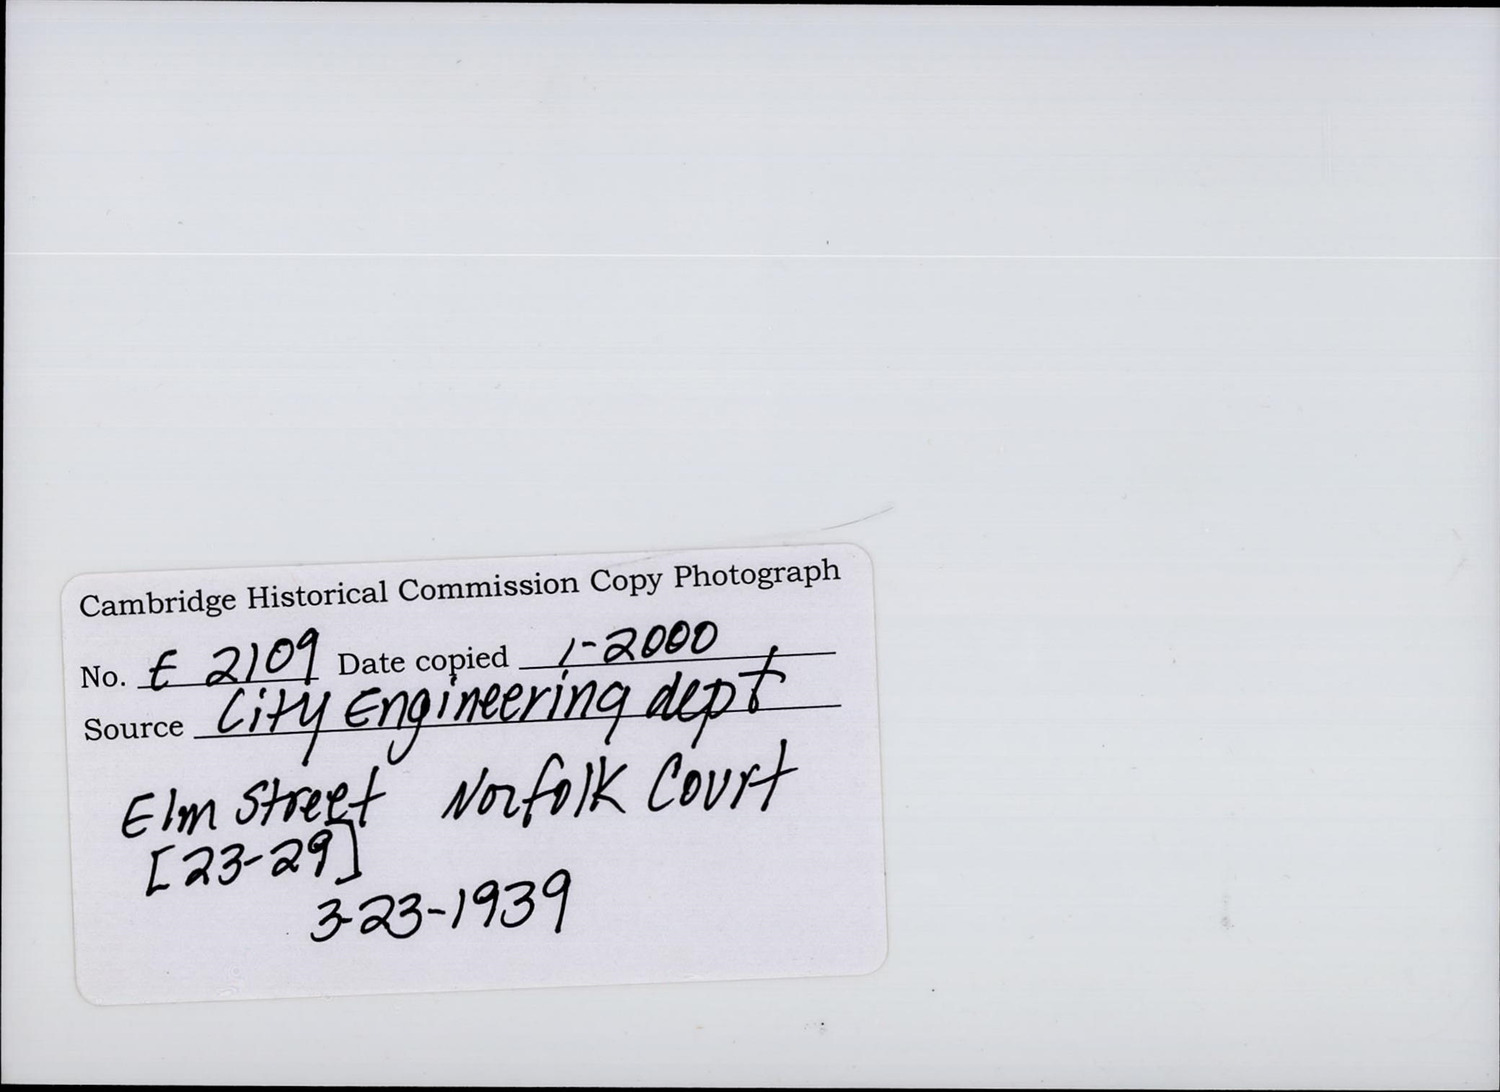 Cambridge Historical Commission Copy Photograph
No. E 2109 Date copied 1-2000
Source City Engineering dept
Elm Street Norfolk Court
[23-29]
3-23-1939